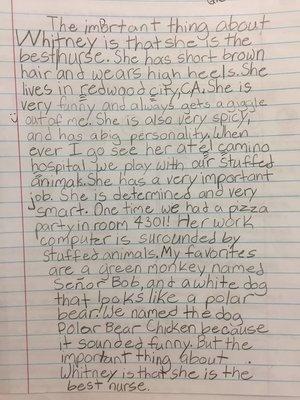 The impBrtant thing about
Whitney is that she is the
best nurse. She has short brown
hair and wears high heels. She
lives in redwood city, CA. She is
very funny and always gets a giggle
out of me. She is also very spicy,
and has a big personality. When
ever I go see her at el camino
hospital we play with our stuffed
animals. She has a very important
job. She is determined and very
smart. One time we had a pizza
party in room 4301! Her work
computer is surounded by
stuffed animals. My favorites
are a green monkey named
Señor Bob, and a white dog
that looks like a polar
bear. We named the dog
Polar Bear Chicken because
it sounded funny. But the
important thing about
Whitney is that she is the
best nurse.